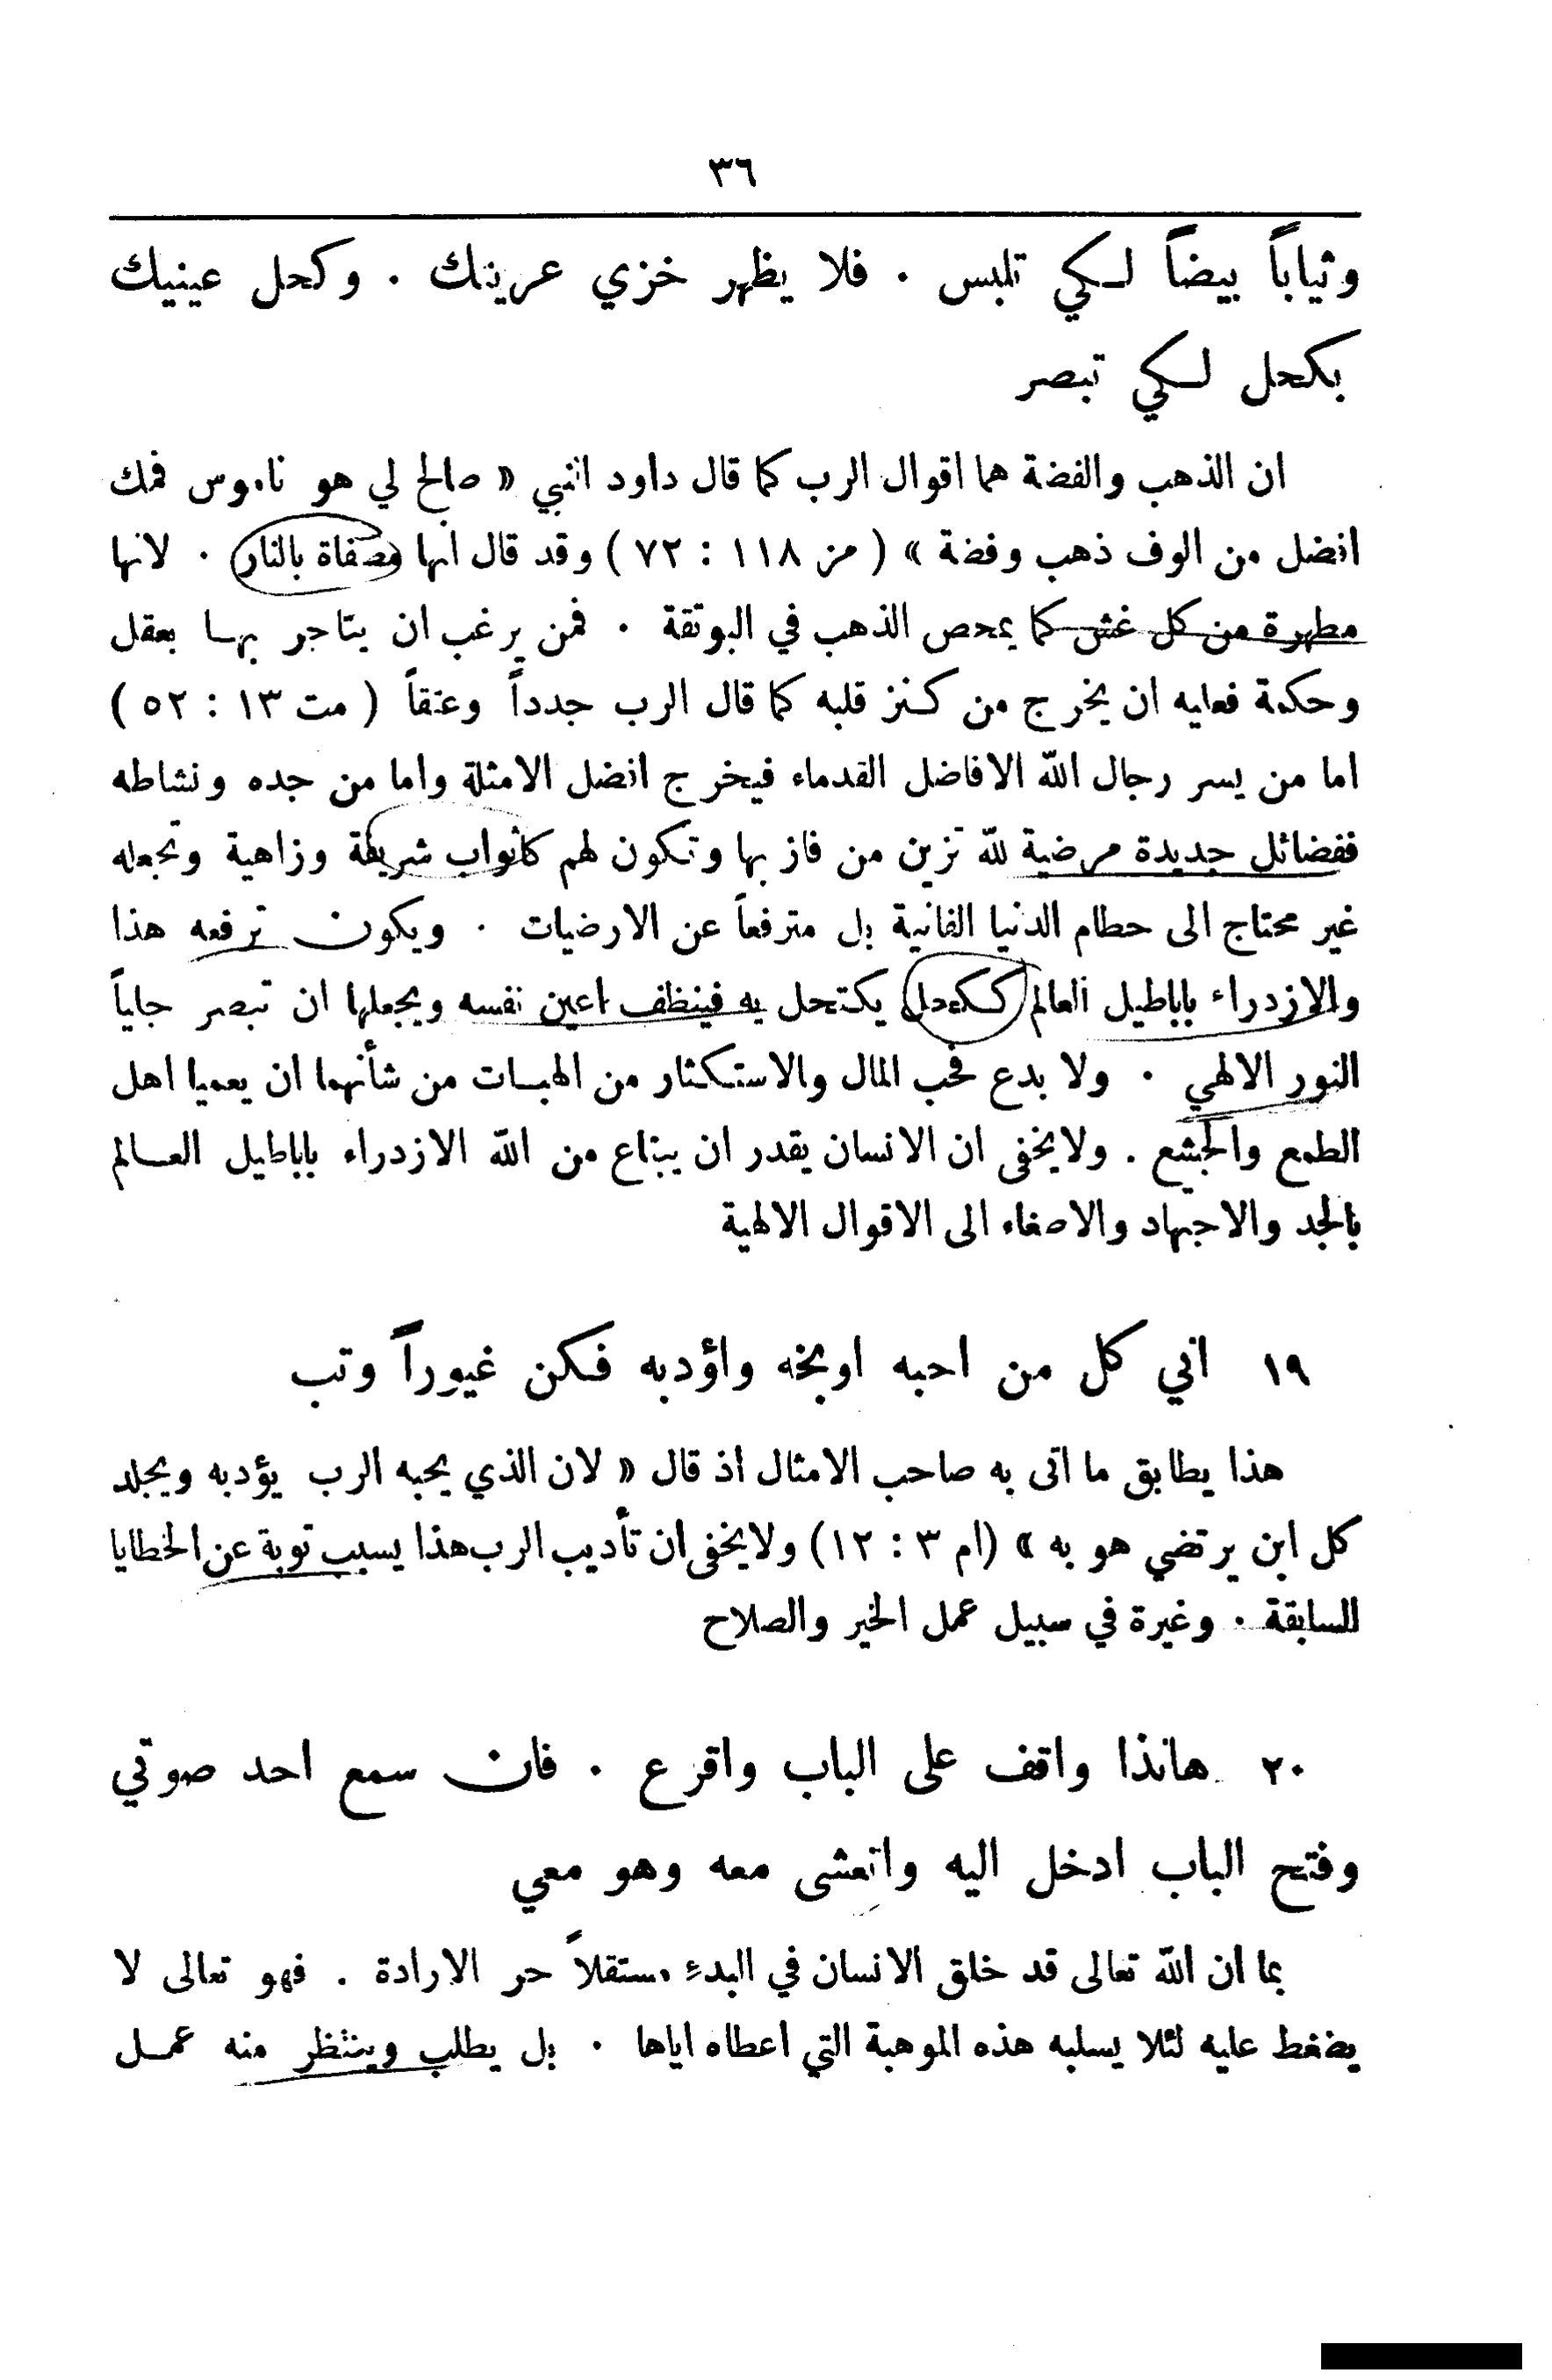 ٣٦
وثياباً بيضاً لكي تلبس . فلا يظهر خزي عريتك . وكحل عينيك
بكحل لكي تبصر
ان الذهب والفضة هما اقوال الرب كما قال داود النبي « صالح لي هو ناموس فمك
افضل من الوف ذهب وفضة » ( مز ١١٨ : ٧٢ ) وقد قال انها مصفاة بالنار . لانها
مطهرة من كل غش كما يمحص الذهب في البوتقة . فمن يرغب ان يتاجر بها بعقل
وحكمة فعليه ان يخرج من كنز قلبه كما قال الرب جدداً وعتقاً ( مت ١٣ : ٥٢ )
اما من يسر رجال الله الافاضل القدماء فيخرج افضل الامثلة واما من جده ونشاطه
ففضائل جديدة مرضية لله تزين من فاز بها وتكون لهم كاثواب شريفة وزاهية وتجعله
غير محتاج الى حطام الدنيا الفانية بل مترفعاً عن الارضيات . ويكون ترفعه هذا
والازدراء باباطيل العالم ككحل يكتحل به فينظف اعين نفسه ويجعلها ان تبصر جلياً
النور الالهي . ولا بدع فحب المال والاستكثار من الهبات من شأنهما ان يعميا اهل
الطمع والجشع . ولا يخفى ان الانسان يقدر ان يبتاع من الله الازدراء باباطيل العالم
بالجد والاجتهاد والاصغاء الى الاقوال الالهية
١٩ اني كل من احبه اوبخه واؤدبه فكن غيوراً وتب
هذا يطابق ما اتى به صاحب الامثال اذ قال « لان الذي يحبه الرب يؤدبه ويجلد
كل ابن يرتضي هو به » (ام ٣ : ١٢) ولا يخفى ان تأديب الرب هذا يسبب توبة عن الخطايا
السابقة . وغيرة في سبيل عمل الخير والصلاح
٢٠ هانذا واقف على الباب واقرع . فان سمع احد صوتي
وفتح الباب ادخل اليه واتعشى معه وهو معي
بما ان الله تعالى قد خلق الانسان في البدء مستقلاً حر الارادة . فهو تعالى لا
يضغط عليه لئلا يسلبه هذه الموهبة التي اعطاه اياها . بل يطلب وينتظر منه عمل